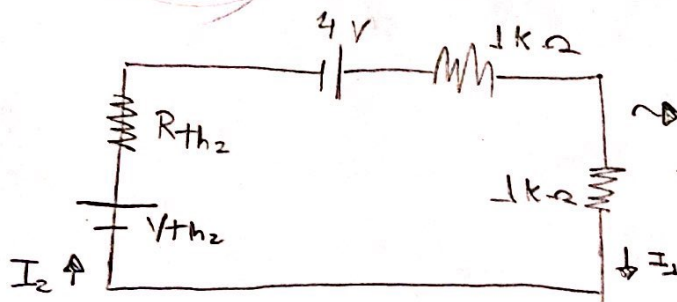 4 V
1 kΩ
Rth2
1 kΩ
Vth2
I2
I1